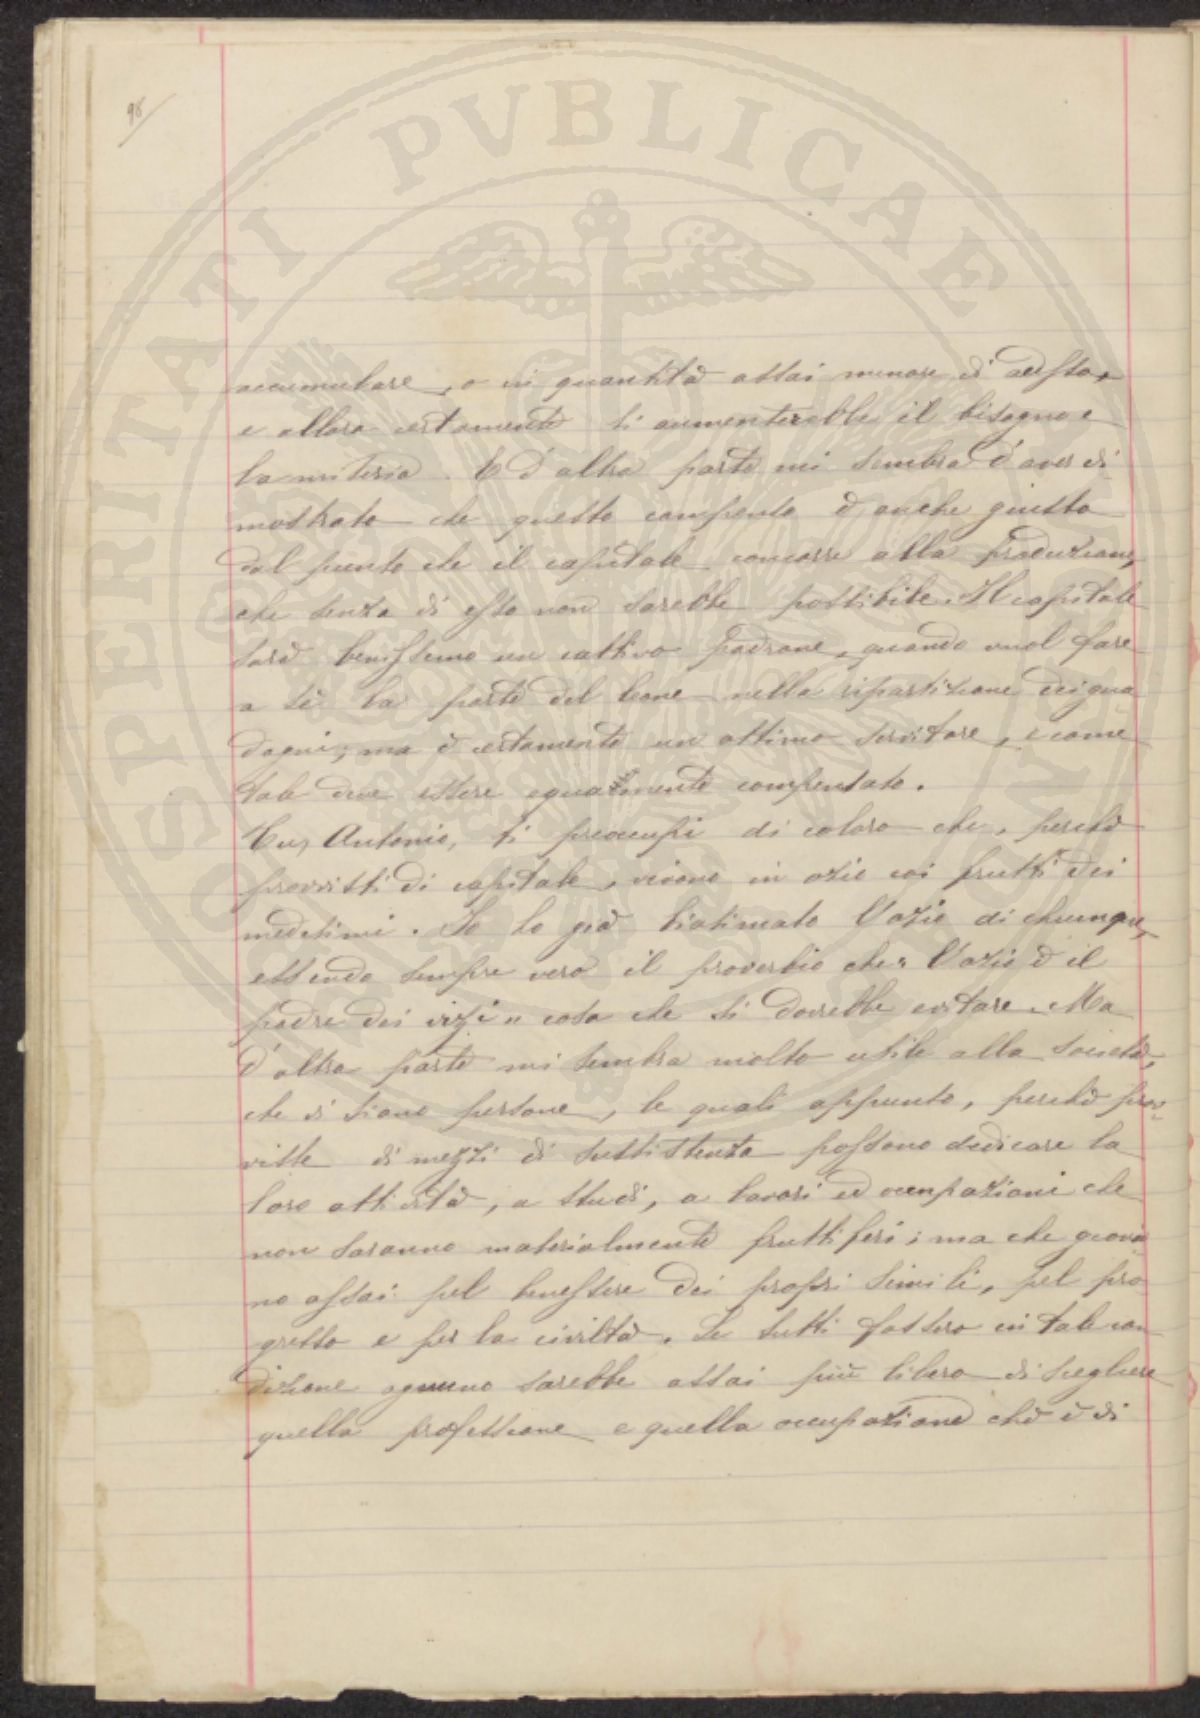 98
PROSPERITATI PUBLICAE
accumulare, o in quantità assai minore di adesso,
e allora certamente si aumenterebbe il bisogno e
la miseria. E d'altra parte mi sembra d'aver di
mostrato che questo compenso è anche giusto
dal punto che il capitale concorre alla produzione,
che senza di esso non sarebbe possibile. Il capitale
sarà benissimo un cattivo padrone, quando vuol fare
a sè la parte del leone nella ripartizione dei gua
dagni; ma è certamente un ottimo servitore, e come
tale deve essere equamente compensato.
Tu, Antonio, ti preoccupi di coloro che, perchè
provvisti di capitale, vivono in ozio coi frutti dei
medesimi. Io ho già biasimato l'ozio di chiunque,
essendo sempre vero il proverbio che "l'ozio è il
padre dei vizi" cosa che si dovrebbe evitare. Ma
d'altra parte mi sembra molto utile alla società,
che vi siano persone, le quali appunto, perchè prov-
viste di mezzi di sussistenza possono dedicare la
loro attività, a studi, a lavori ed occupazioni che
non saranno materialmente fruttiferi; ma che giova
no assai pel benessere dei propri simili, pel pro
gresso e per la civiltà. Se tutti fossero in tale con
dizione ognuno sarebbe assai più libero di scegliere
quella professione e quella occupazione che è di